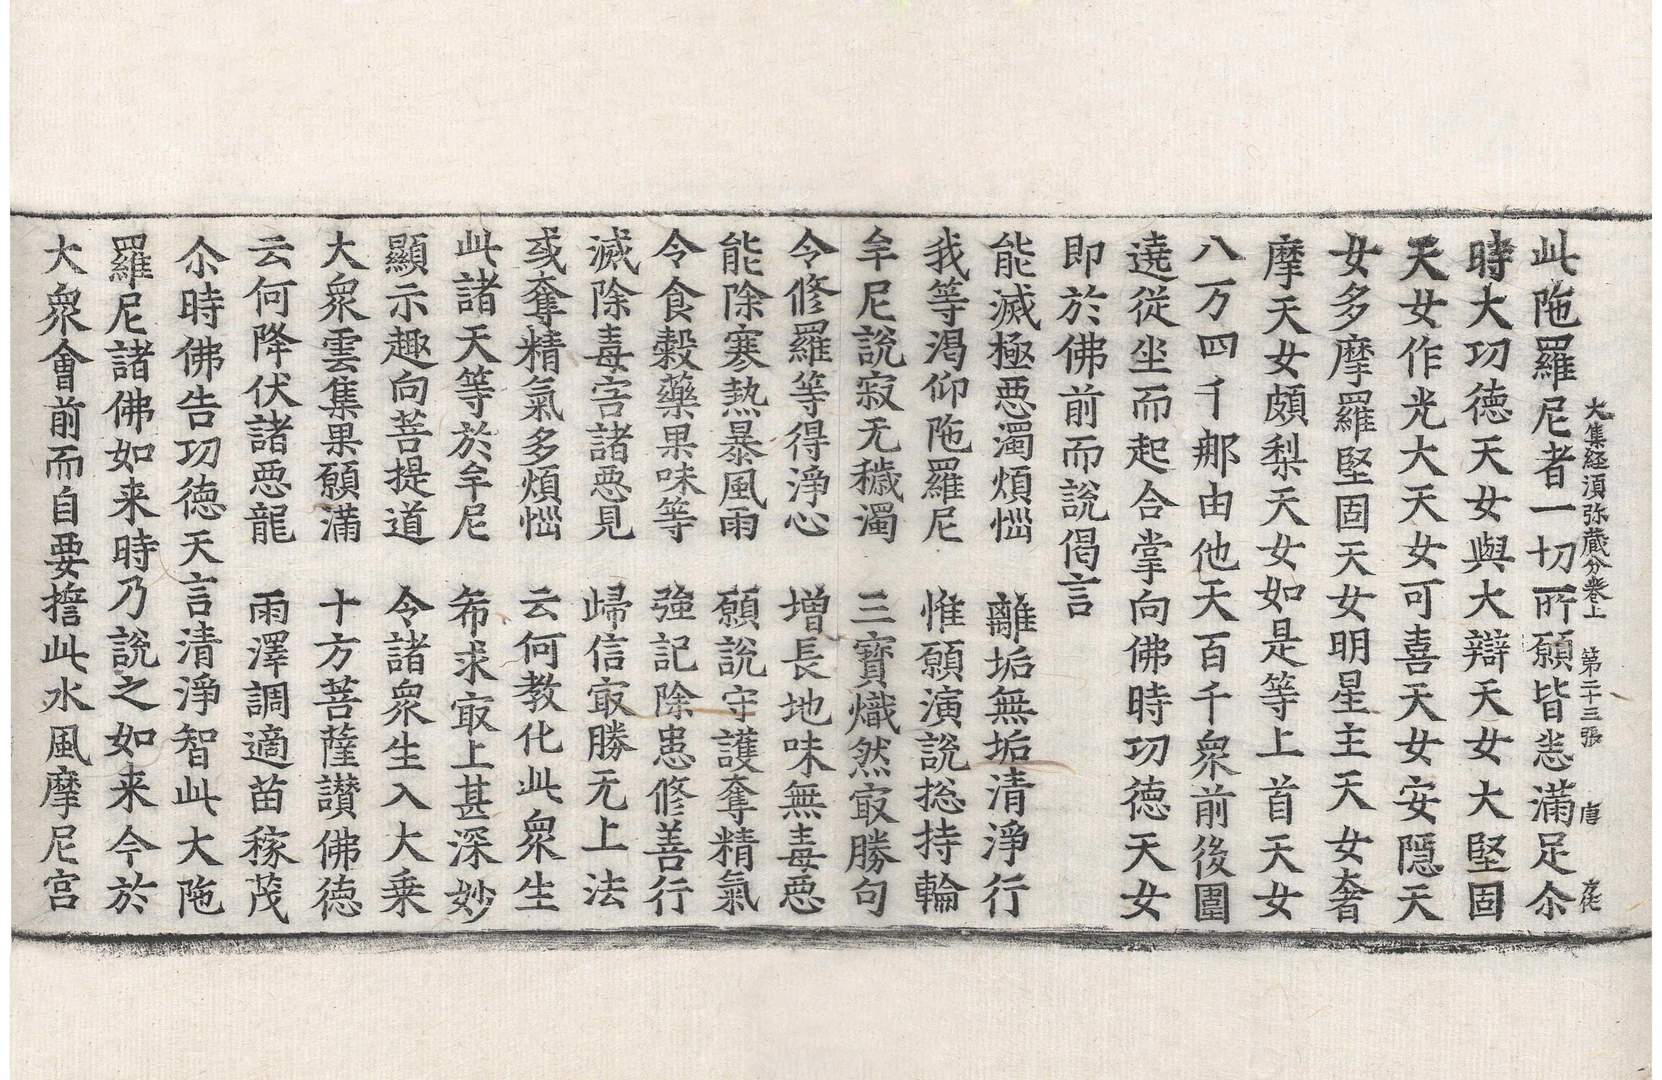 大集経湏弥蔵分卷上 第二十三張 唐
此陁羅尼者一切所願皆悉滿足尒
時大㓛德天女與大辯天女大堅固
天女作光大天女可喜天女安隱天
女多摩羅堅固天女明星主天女奢
摩天女頗梨天女如是等上首天女
八万四千那由他天百千衆前後圍
遶従坐而起合掌向佛時㓛德天女
即於佛前而說偈言
能滅極悪濁煩惱 離垢無垢清淨行
我等渴仰陁羅尼 惟願演說捴持輪
牟尼說寂无穢濁 三寶熾然㝡勝句
令修羅等得淨心 增長地味無毒悪
能除寒熱暴風雨 願說守護奪精氣
令食穀藥果味等 強記除患修善行
滅除毒害諸悪見 歸信㝡勝无上法
或奪精氣多煩惱 云何教化此衆生
此諸天等於牟尼 希求㝡上甚深妙
顯示趣向菩提道 令諸衆生入大乗
大衆雲集果願滿 十方菩薩讃佛德
云何降伏諸悪龍 雨澤調適苗稼茂
尒時佛告㓛德天言清淨智此大陁
羅尼諸佛如来時乃說之如来今於
大衆會前而自要擔此水風摩尼宮